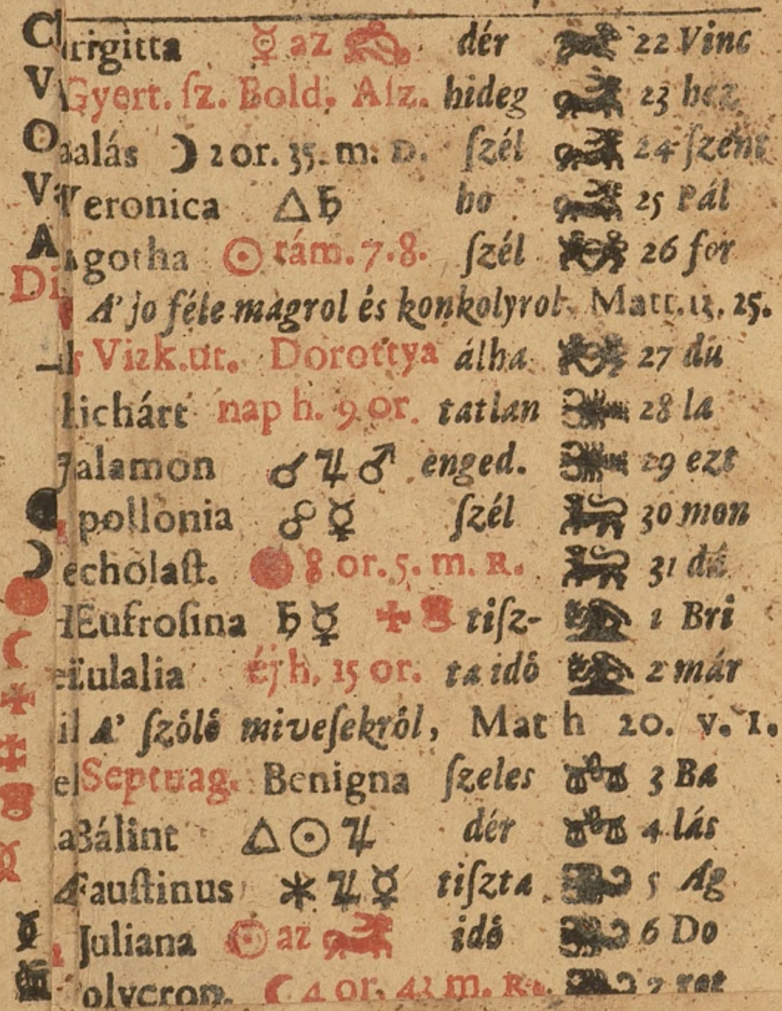 C rigitta ☿ az dér 22 Vinc
V Gyert. ſz. Bold. Aſz. hideg 23 hez
O alás ☽ 2 or. 35. m. D. ſzél 24 ſzent
V Veronica △ ♄ ho 25 Pál
A gotha ☉ tám. 7. 8. ſzél 26 for
Di A' jo féle magrol és konkolyrol. Matt. 13. 25.
Vizk. ut. Dorottya álha 27 du
ichárt nap h. 9 or. tatlan 28 la
alamon ☌ ♃ ♂ enged. 29 ezt
pollonia ☍ ☿ ſzél 30 mon
echolaſt. 8 or. 5. m. R. ſzél 31 du
Eufroſina ♄ ☿ tiſz- 1 Bri
eulalia éj h. 15 or. ta idő 2 már
il A' ſzőlő miveſekről, Math 20. v. 1.
el Septuag. Benigna ſzeles 3 Ba
Bálint △ ☉ ♃ dér 4 lás
Fauſtinus ✶ ♃ ☿ tiſzta 5 Ag
Juliana ☉ az idő 6 Do
olycron. ☾ 4 or. 43 m. R.